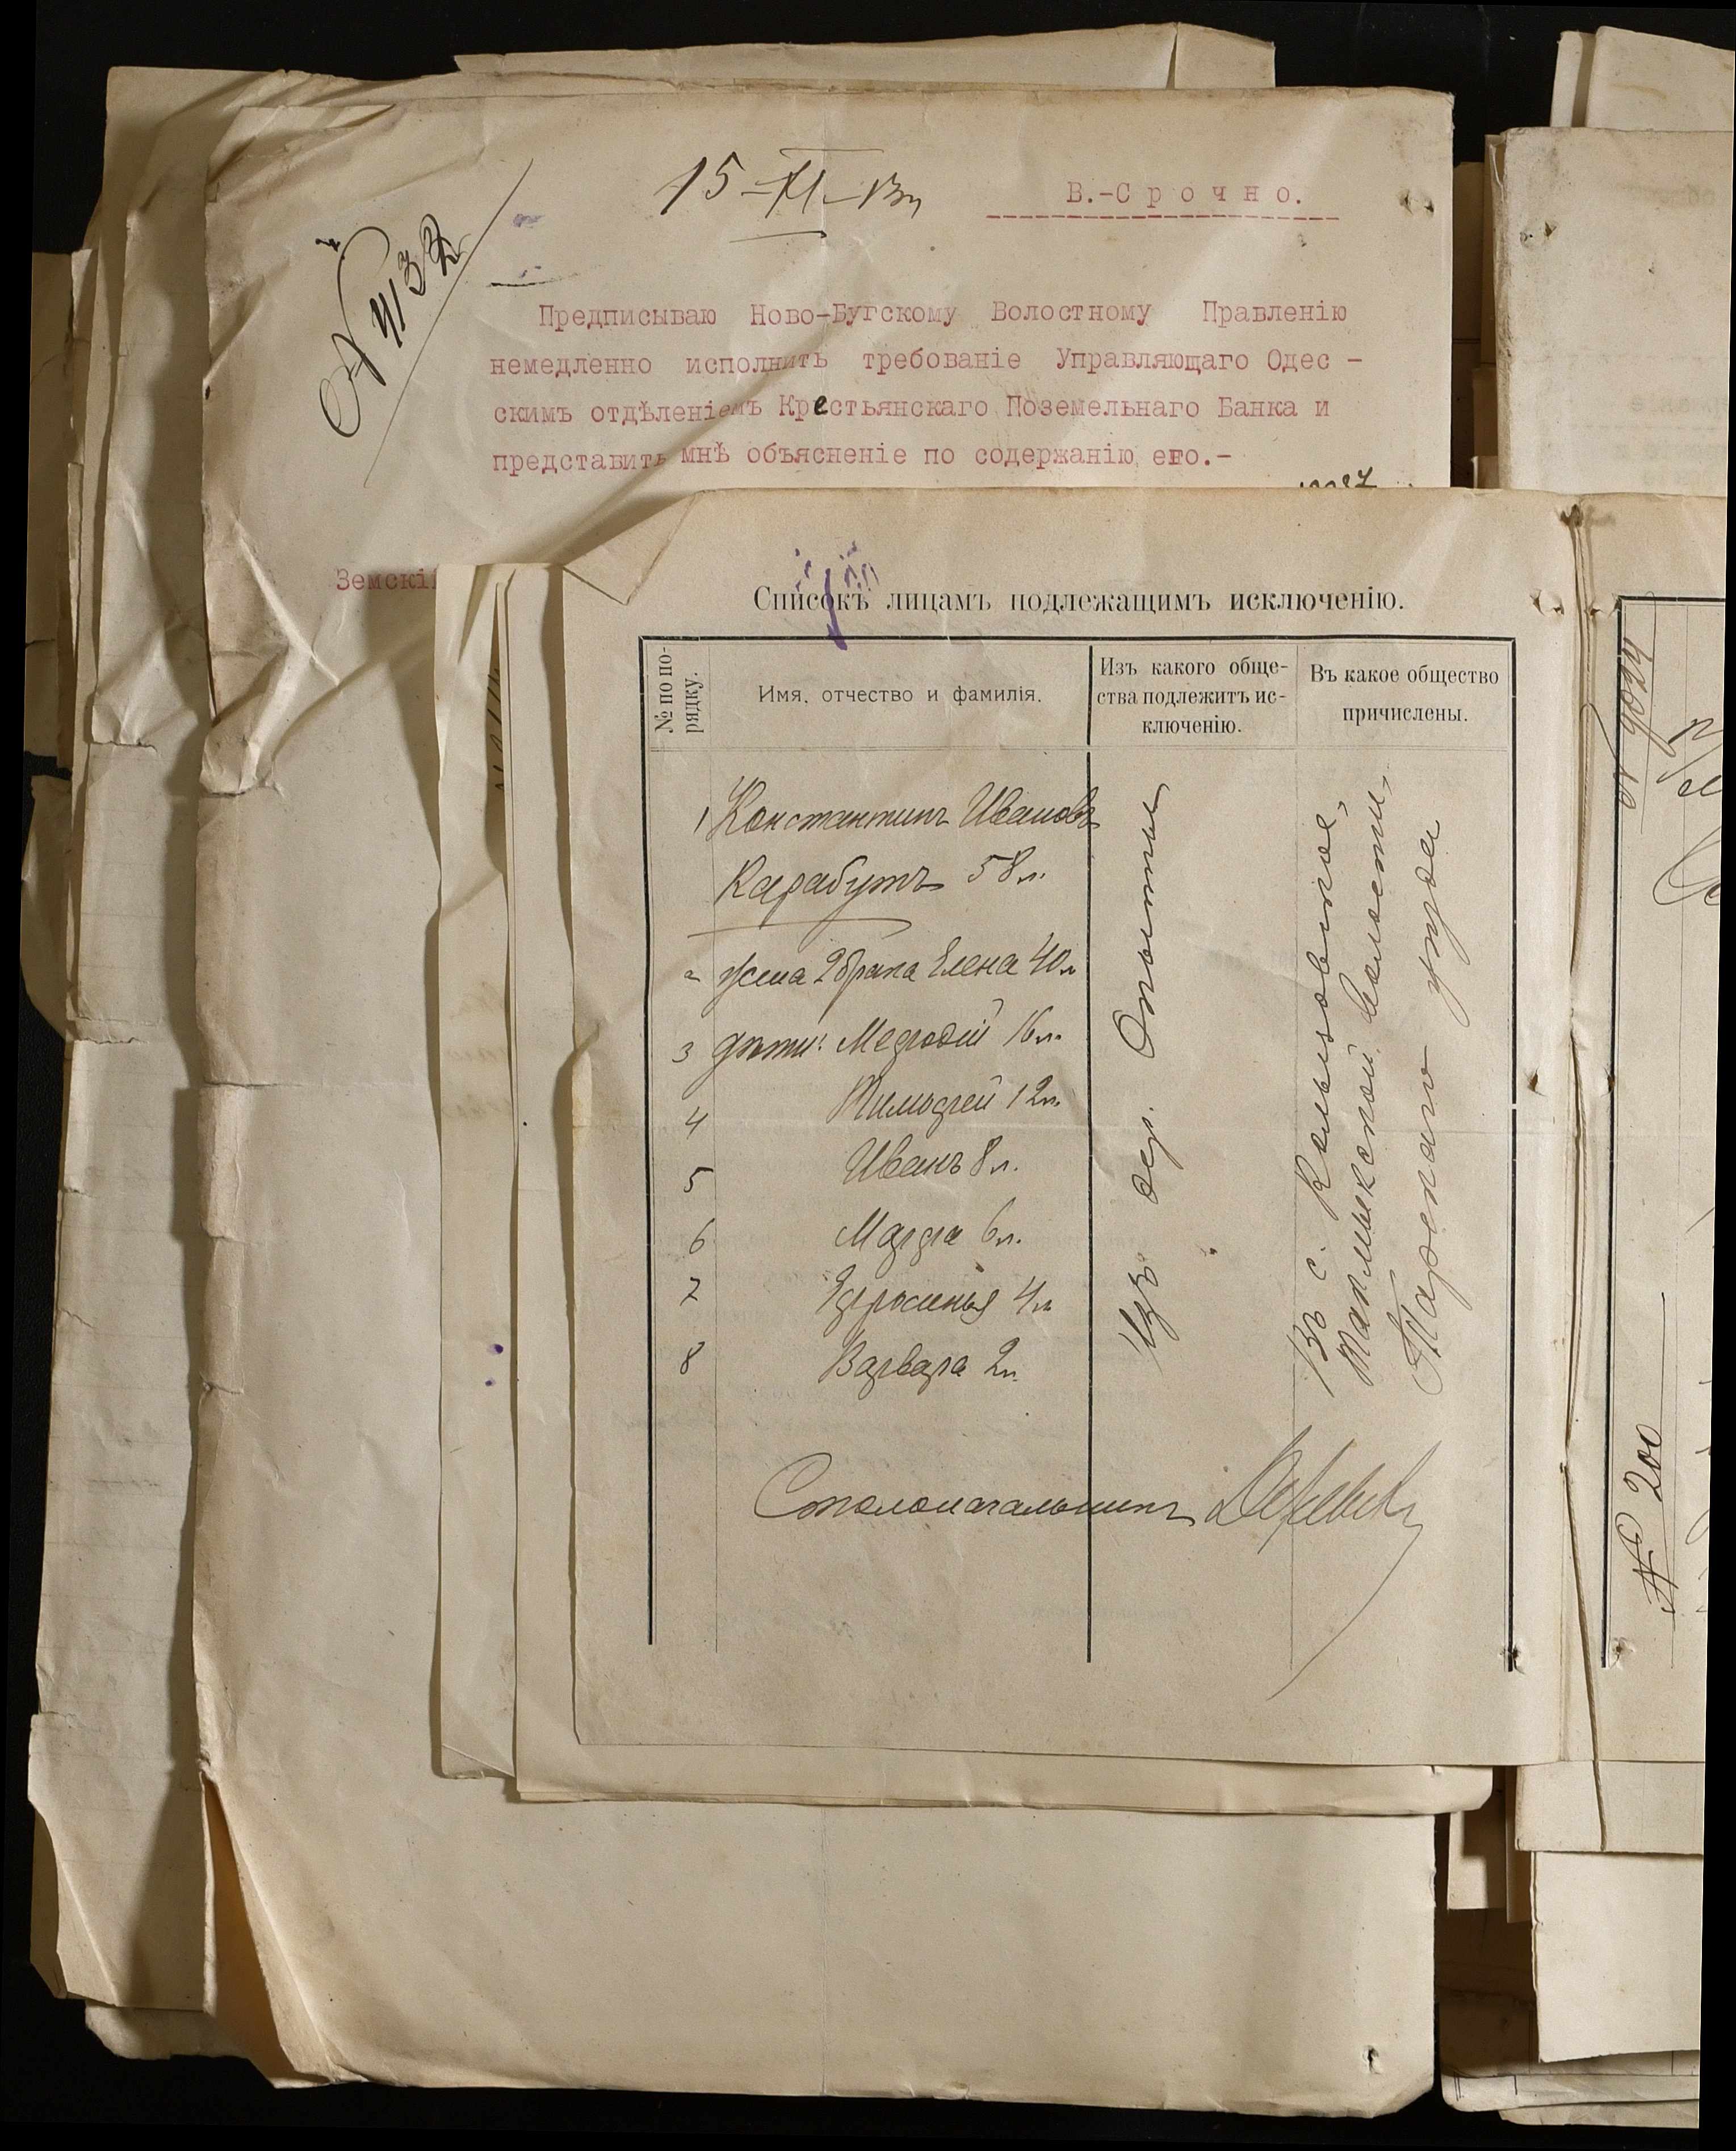 15-XI-13 г.
В.-Срочно.
№ 4132
Предписываю Ново-Бугскому Волостному Правленію
немедленно исполнить требованіе Управляющаго Одес-
скимъ отдѣленіемъ Крестьянскаго Поземельнаго Банка и
представить мнѣ объясненіе по содержанію его.-
Земскі
Списокъ лицамъ подлежащимъ исключенію.
№ по по-
рядку.
Имя, отчество и фамилія.
Изъ какого обще-
ства подлежитъ ис-
ключенію.
Въ какое общество
причислены.
1 Константинъ Ивановъ
Карабутъ 58 л.
2 жена 2 брака Елена 40 л
3 дѣти: Мефодій 16 л.
4 Тимофей 12 л.
5 Иванъ 8 л.
6 Марфа 6 л.
7 Ефросинья 4 л
8 Варвара 2 л.
Изъ дер.
Въ с.
волости,
уѣзда
Столоначальникъ
№ 200